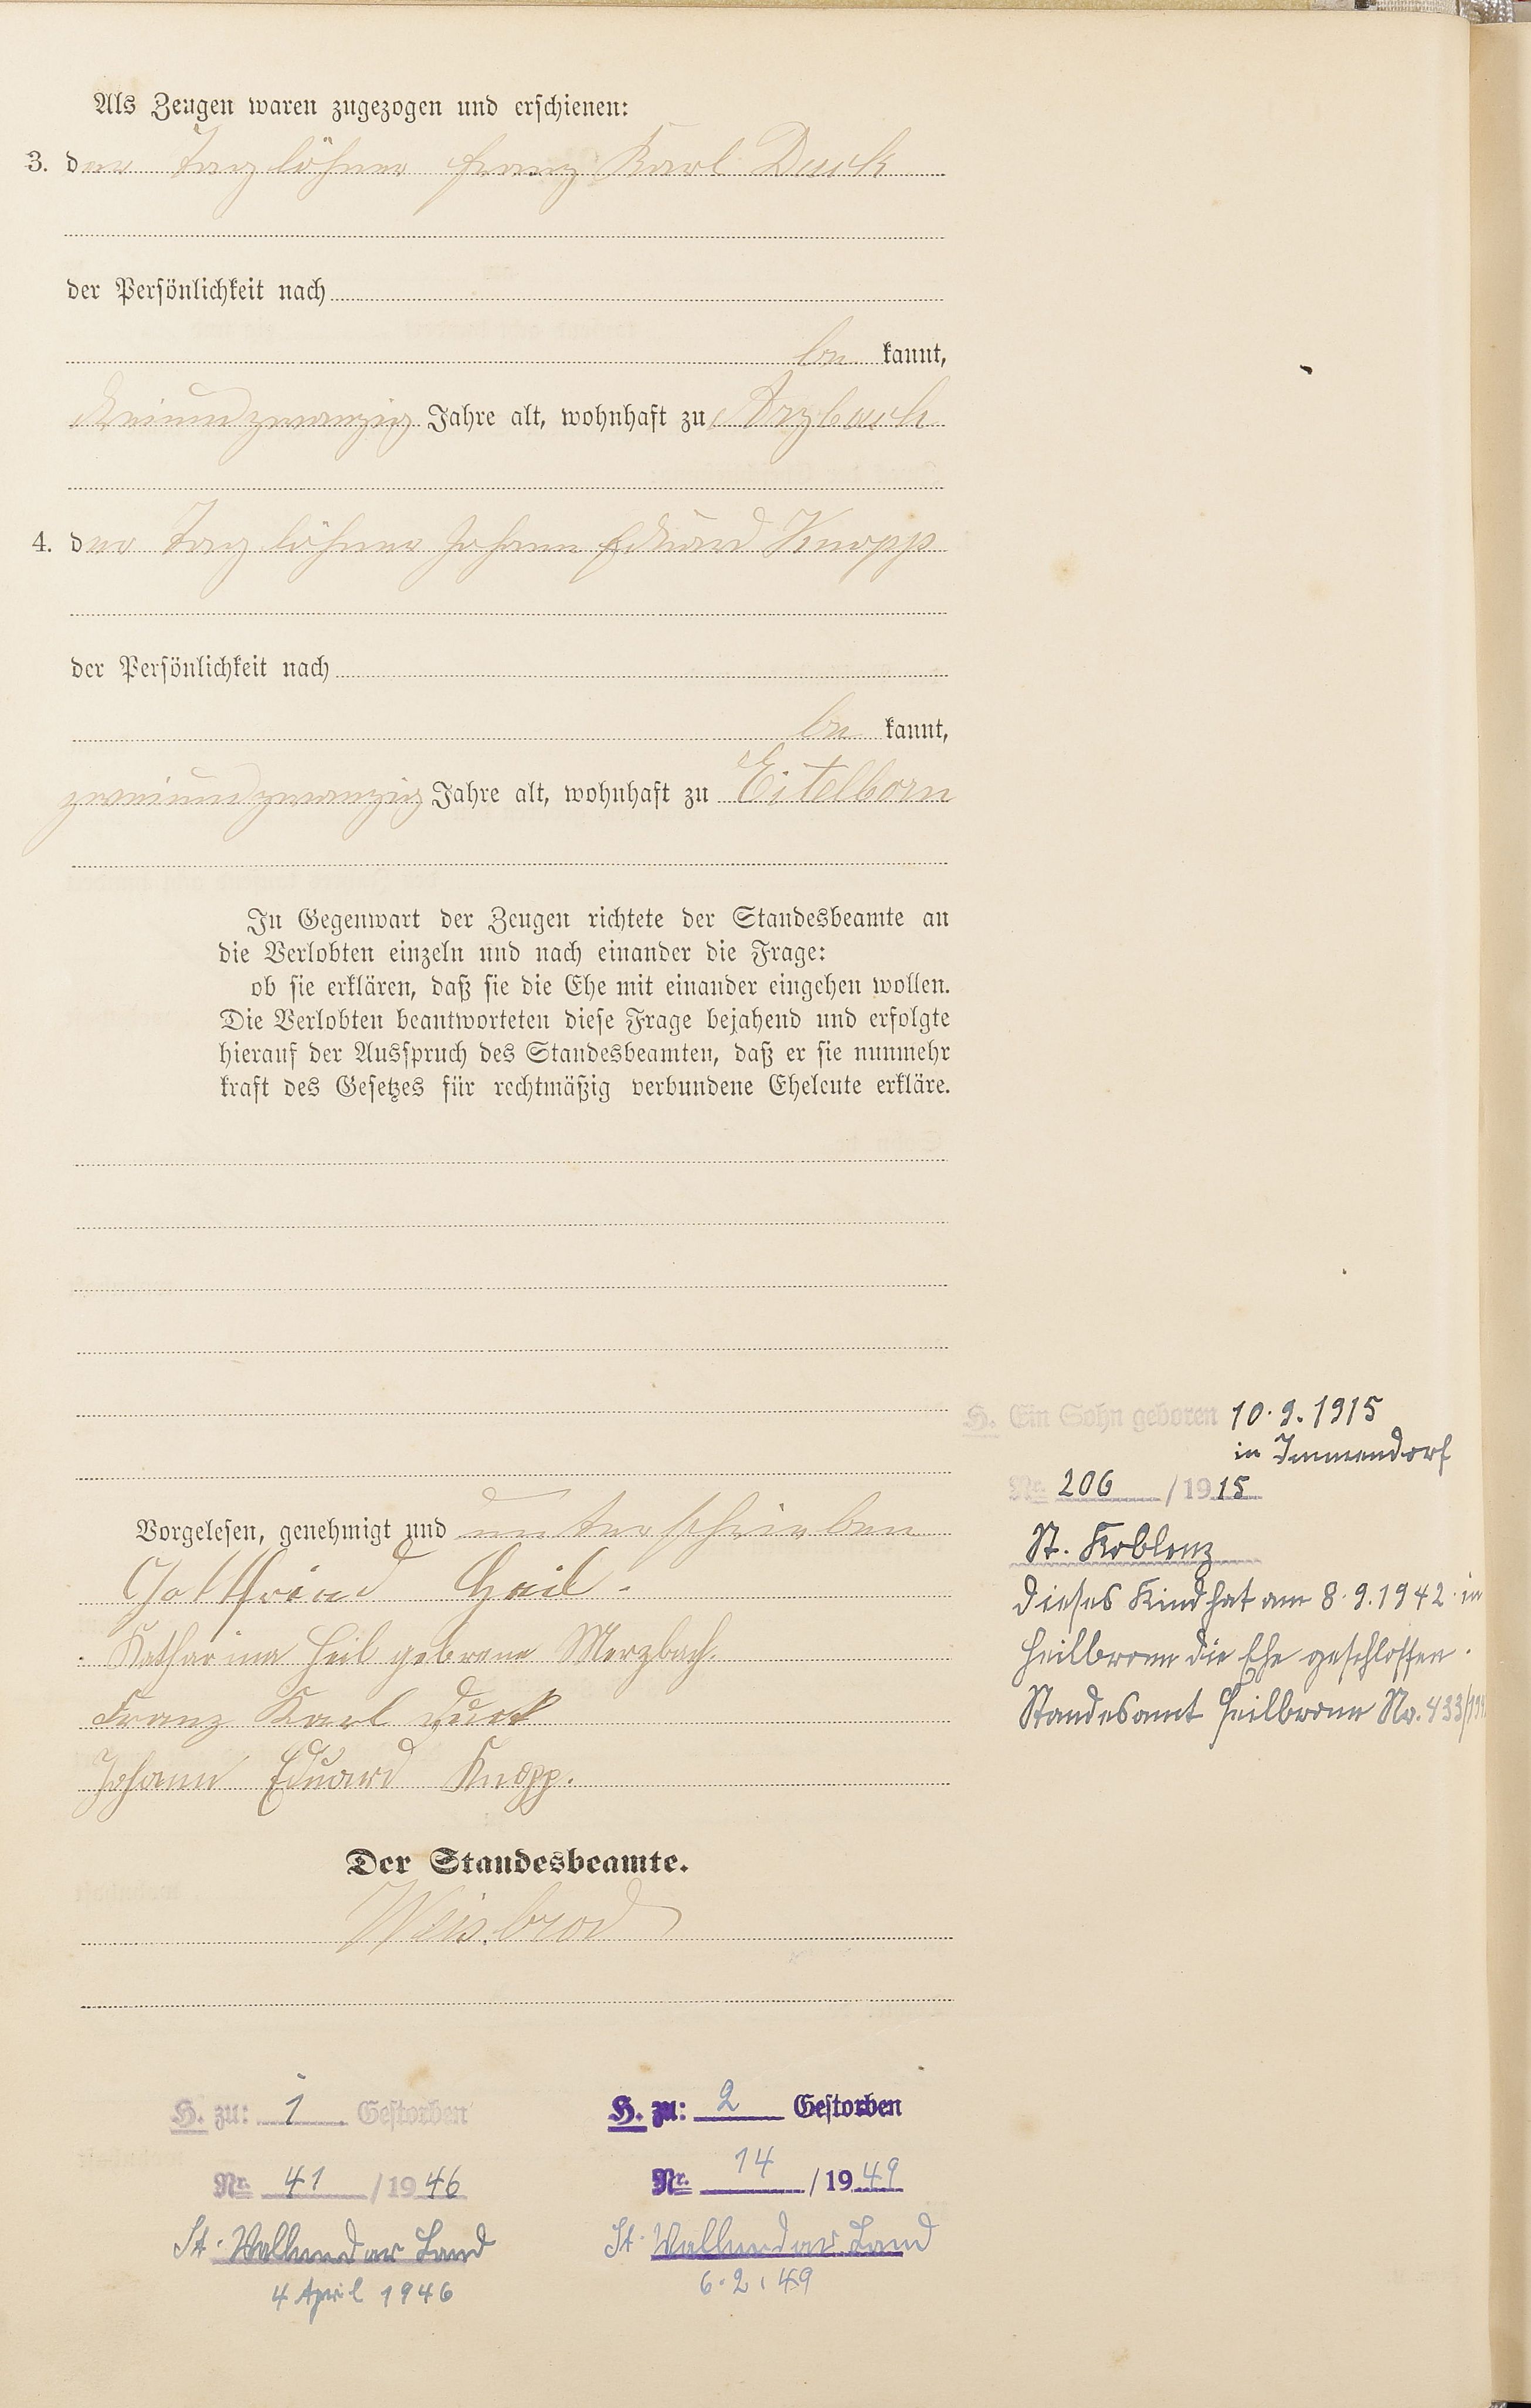 Als Zeugen waren zugezogen und erschienen:
3. der Taglöhner Franz Karl Duck
der Persönlichkeit nach
be kannt,
dreiundzwanzig Jahre alt, wohnhaft zu Arzbach
4. der Taglöhner Johann Eduard Knopp
der Persönlichkeit nach
be kannt,
zweiundzwanzig Jahre alt, wohnhaft zu Eitelborn
In Gegenwart der Zeugen richtete der Standesbeamte an
die Verlobten einzeln und nach einander die Frage:
ob sie erklären, daß sie die Ehe mit einander eingehen wollen.
Die Verlobten beantworteten diese Frage bejahend und erfolgte
hierauf der Ausspruch des Standesbeamten, daß er sie nunmehr
kraft des Gesetzes für rechtmäßig verbundene Eheleute erkläre.
Vorgelesen, genehmigt und unterschrieben
Gottfried Heil.
Katharina Heil geborene Merzbach.
Franz Karl Duck
Johann Eduard Knopp.
Der Standesbeamte.
Weisbrod
H. Ein Sohn geboren 10.9.1915
in Immendorf
Nr. 206 / 1915
St. Koblenz
Dieses Kind hat am 8.9.1942 in
Heilbronn die Ehe geschlossen.
Standesamt Heilbronn No. 433/194
H. zu: 1 Gestorben
Nr. 41 / 1946
St. Vallendar Land
4 April 1946
H. zu: 2 Gestorben
Nr. 14 / 1949
St. Vallendar Land
6.2.49